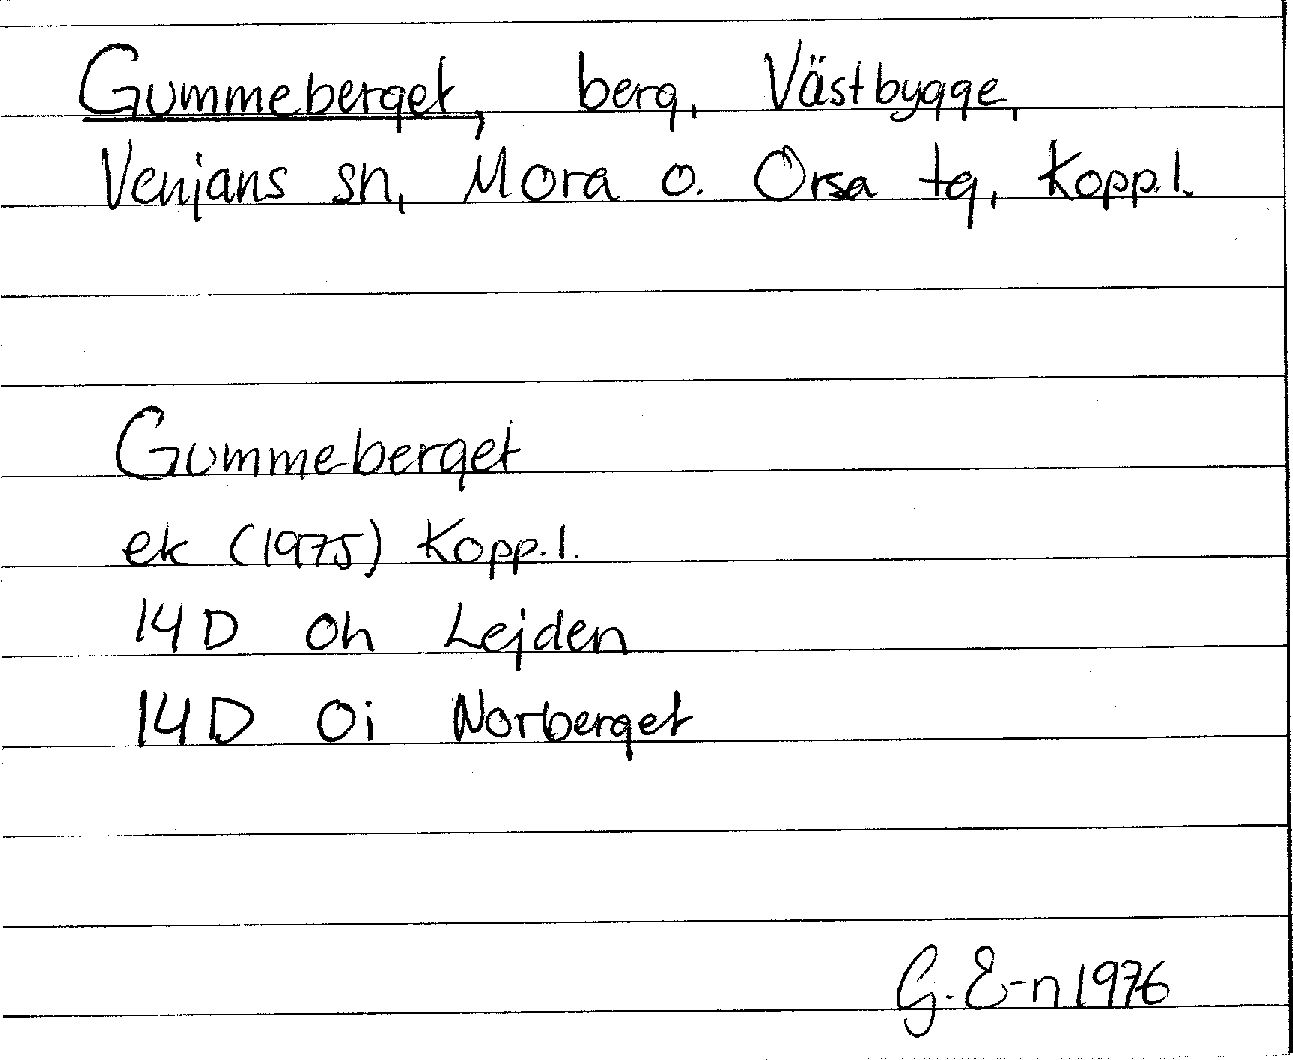 Gummeberget, berg, Västbygge,
Venjans sn, Mora o. Orsa tg, Kopp.l.
Gummeberget
ek (1975) Kopp.l.
14D 0h Lejden
14D 0i Norberget
G. E-n 1976